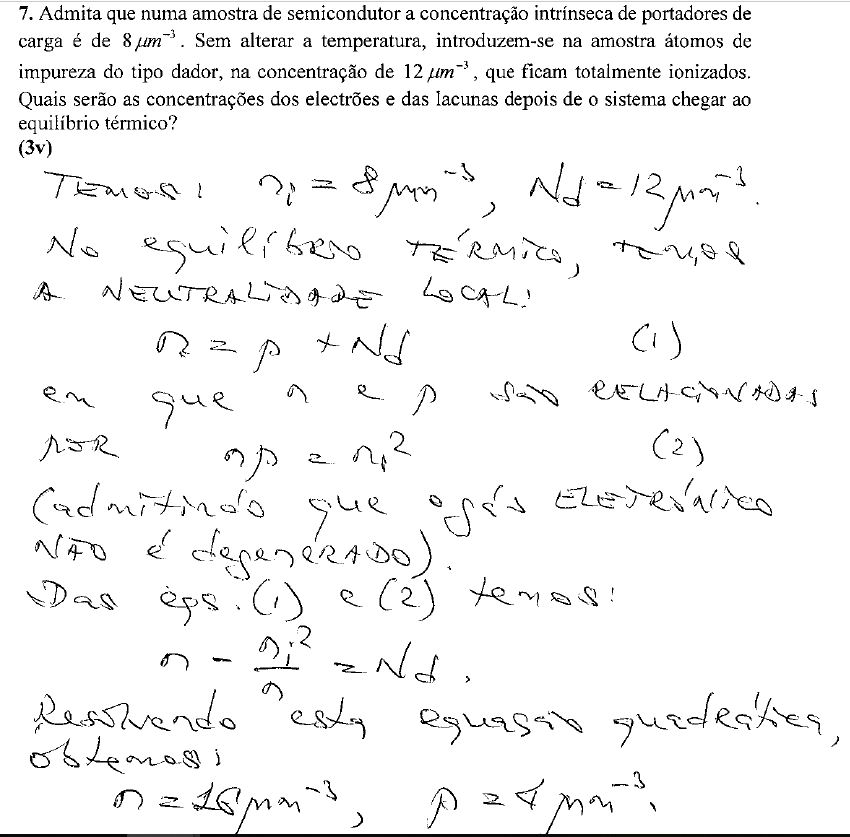 7. Admita que numa amostra de semicondutor a concentração intrínseca de portadores de
carga é de 8 μm⁻³. Sem alterar a temperatura, introduzem-se na amostra átomos de
impureza do tipo dador, na concentração de 12 μm⁻³, que ficam totalmente ionizados.
Quais serão as concentrações dos electrões e das lacunas depois de o sistema chegar ao
equilíbrio térmico?
(3v)
TEMOS: nᵢ = 8 μm⁻³, Nd = 12 μm⁻³.
No equilíbrio TÉRMICO, temos
A NEUTRALIDADE LOCAL:
n = p + Nd (1)
em que n e p são RELACIONADAS
POR np = nᵢ² (2)
(admitindo que o gás ELETRÓNICO
NÃO é degenERADO).
Das eqs. (1) e (2) temos:
n - nᵢ²/n = Nd.
Resolvendo esta equação quadrática,
obtemos:
n = 16 μm⁻³, p = 4 μm⁻³.